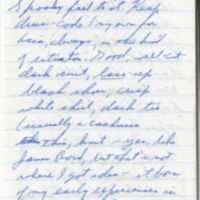 Spooky feel to it. Keep
dress-code I my own for
this, always, in this kind
of situation. Good, well-cut
dark suit, lace-up
black shoes, crisp
white shirt, dark tie
(usually a cashmere
this, knit - yes, like
James Bond, but that is not
where I got idea - it born
of my early experiences in